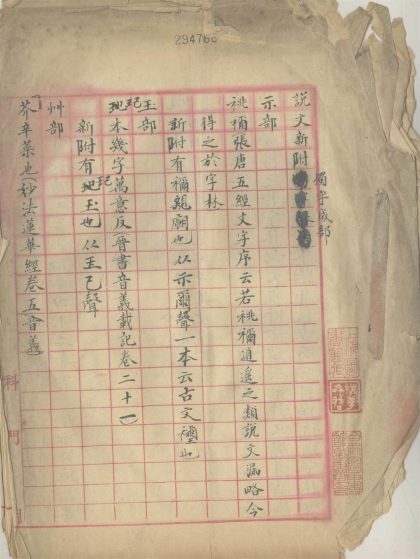 294766
說文新附
獨字成部
示部
祧禰張唐五經文字序云若祧禰逍遙之類說文漏略今
得之於字林
新附有禰親廟也从示爾聲一本云古文禰也
玉部
玘
玘本幾字萬意反晉書音義載記卷二十一
新附有玘玉也从玉己聲
艸部
芥辛菜也妙法蓮華經卷五音義
科